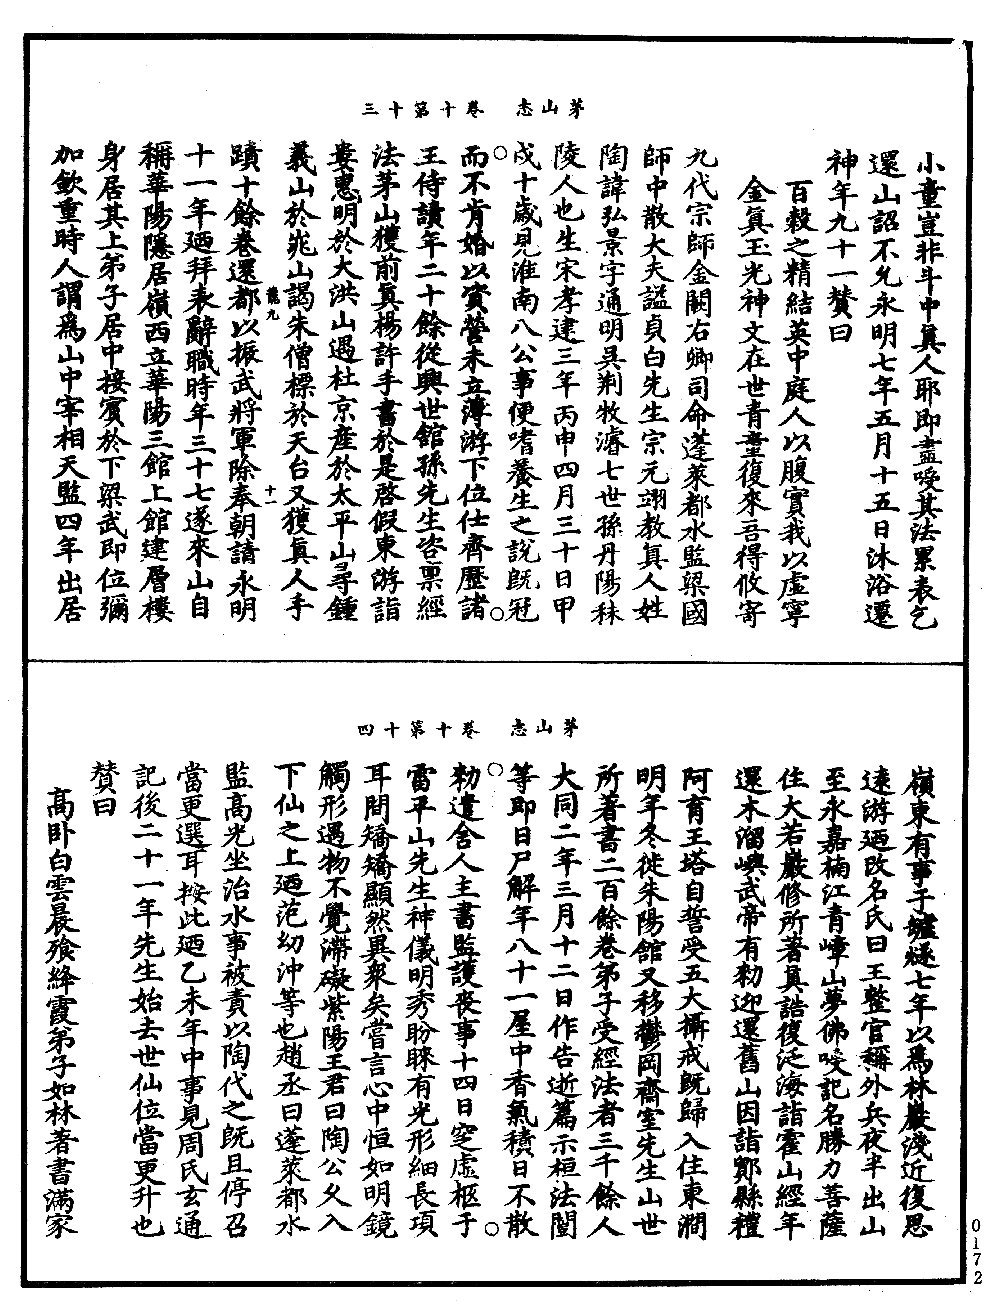 茅山志　卷十第十三
小童豈非斗中真人耶即盡受其法累表乞
還山詔不允永明七年五月十五日沐浴遷
神年九十一贊曰
百穀之精結英中庭人以腹實我以虛寧
金真玉光神文在世青童復來吾得攸寄
九代宗師金闕右卿司命蓬萊都水監梁國
師中散大夫謚貞白先生宗元翊教真人姓
陶諱弘景字通明吳荆牧濬七世孫丹陽秣
陵人也生宋孝建三年丙申四月三十日甲
戍十歲見淮南八公事便嗜養生之說旣冠
而不肯婚以資營未立薄游下位仕齊歷諸
王侍讀年二十餘從興世館孫先生咨禀經
法茅山獲前真楊許手書於是啓假東游詣
婁惠明於大洪山遇杜京産於太平山尋鍾
義山於兆山謁朱僧標於天台又獲真人手
龍九
十一
蹟十餘卷還都以振武將軍除奉朝請永明
十一年廼拜表辭職時年三十七遂來山自
稱華陽隱居嶺西立華陽三館上館建層樓
身居其上弟子居中接賓於下梁武即位彌
加欽重時人謂爲山中宰相天監四年出居
茅山志　卷十第十四
嶺東有事于爐燧七年以爲林巖淺近復思
遠游廼改名氏曰王整官稱外兵夜半出山
至永嘉楠江青嶂山夢佛受記名勝力菩薩
住大若巖修所著真誥復泛海詣霍山經年
還木溜嶼武帝有勑迎還舊山因詣鄮縣禮
阿育王塔自誓受五大攝戒旣歸入住東澗
明年冬徙朱陽館又移鬱岡齋室先生山世
所著書二百餘卷弟子受經法者三千餘人
大同二年三月十二日作告逝篇示桓法闓
等即日尸解年八十一屋中香氣積日不散
勑遣舍人主書監護喪事十四日窆虛柩于
雷平山先生神儀明秀盼睞有光形細長項
耳間矯矯顯然異衆矣嘗言心中恒如明鏡
觸形遇物不覺滯礙紫陽王君曰陶公久入
下仙之上廼范幼沖等也趙丞曰蓬萊都水
監高光坐治水事被責以陶代之旣且停召
當更選耳按此廼乙未年中事見周氏玄通
記後二十一年先生始去世仙位當更升也
贊曰
高卧白雲晨飱絳霞弟子如林著書滿家
0172